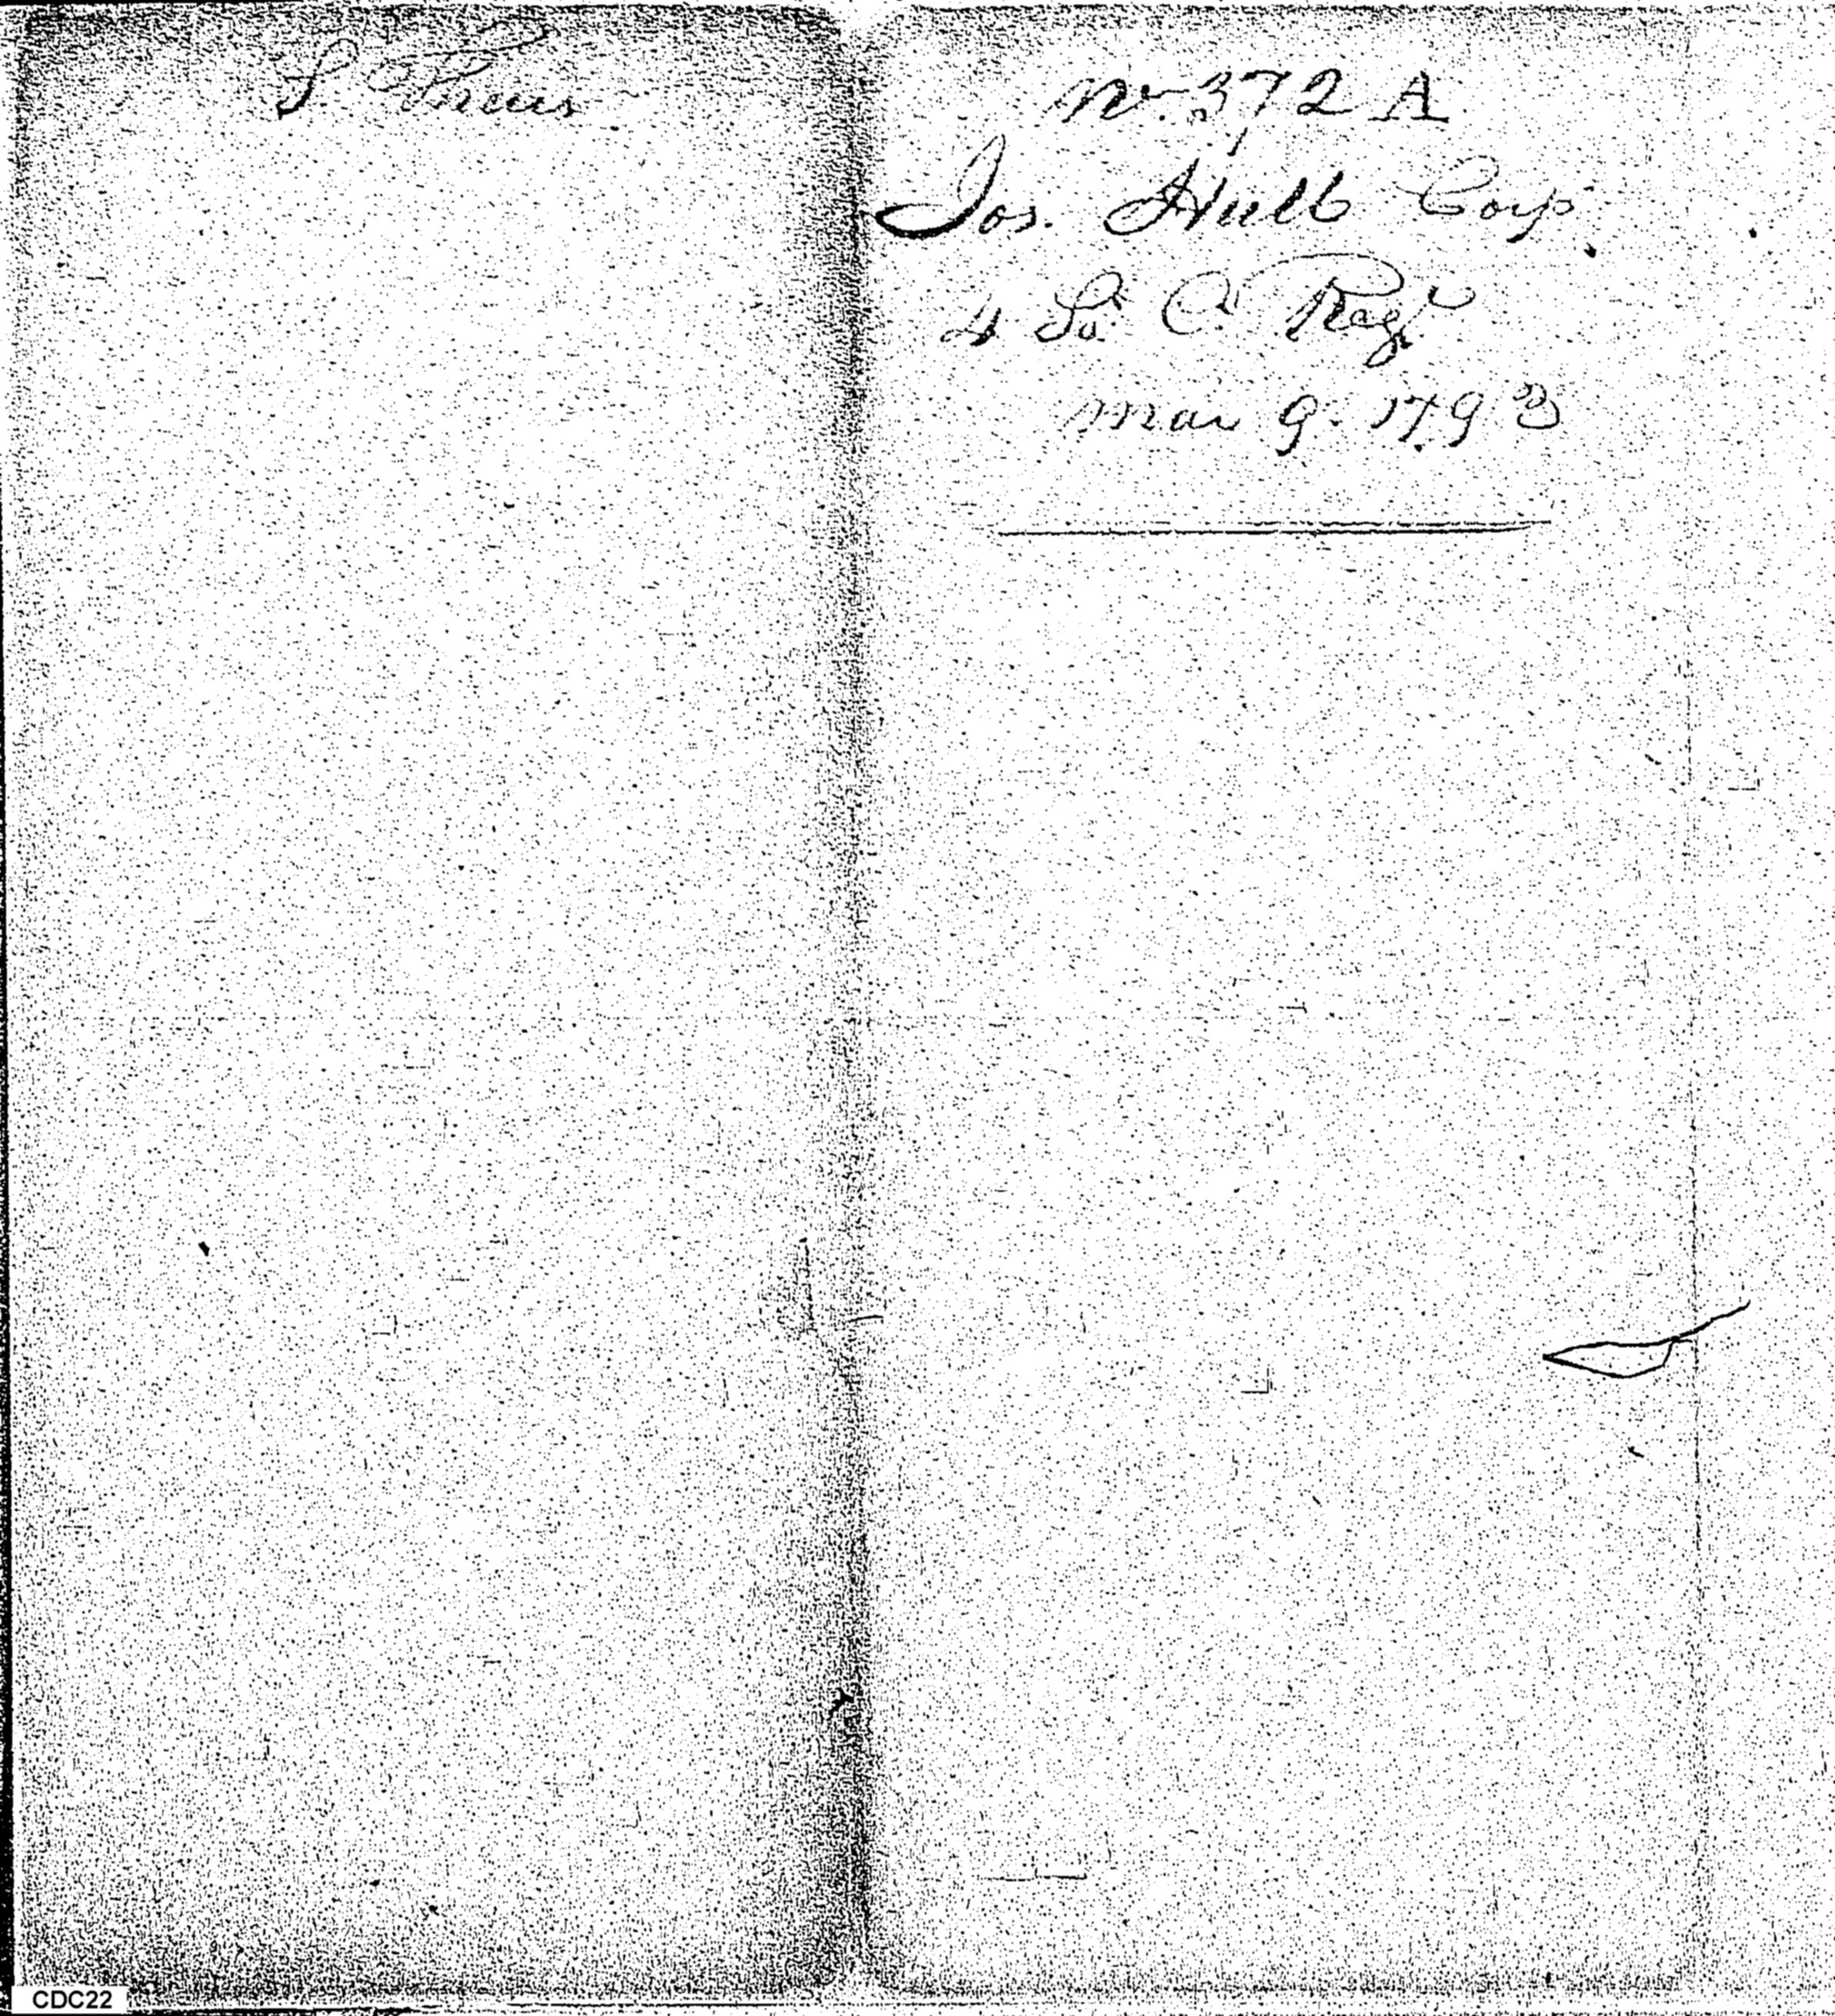 No. 372 A
Jos. Hull Corp.
4 So. C. Regt
Mar 9. 1793
CDC22